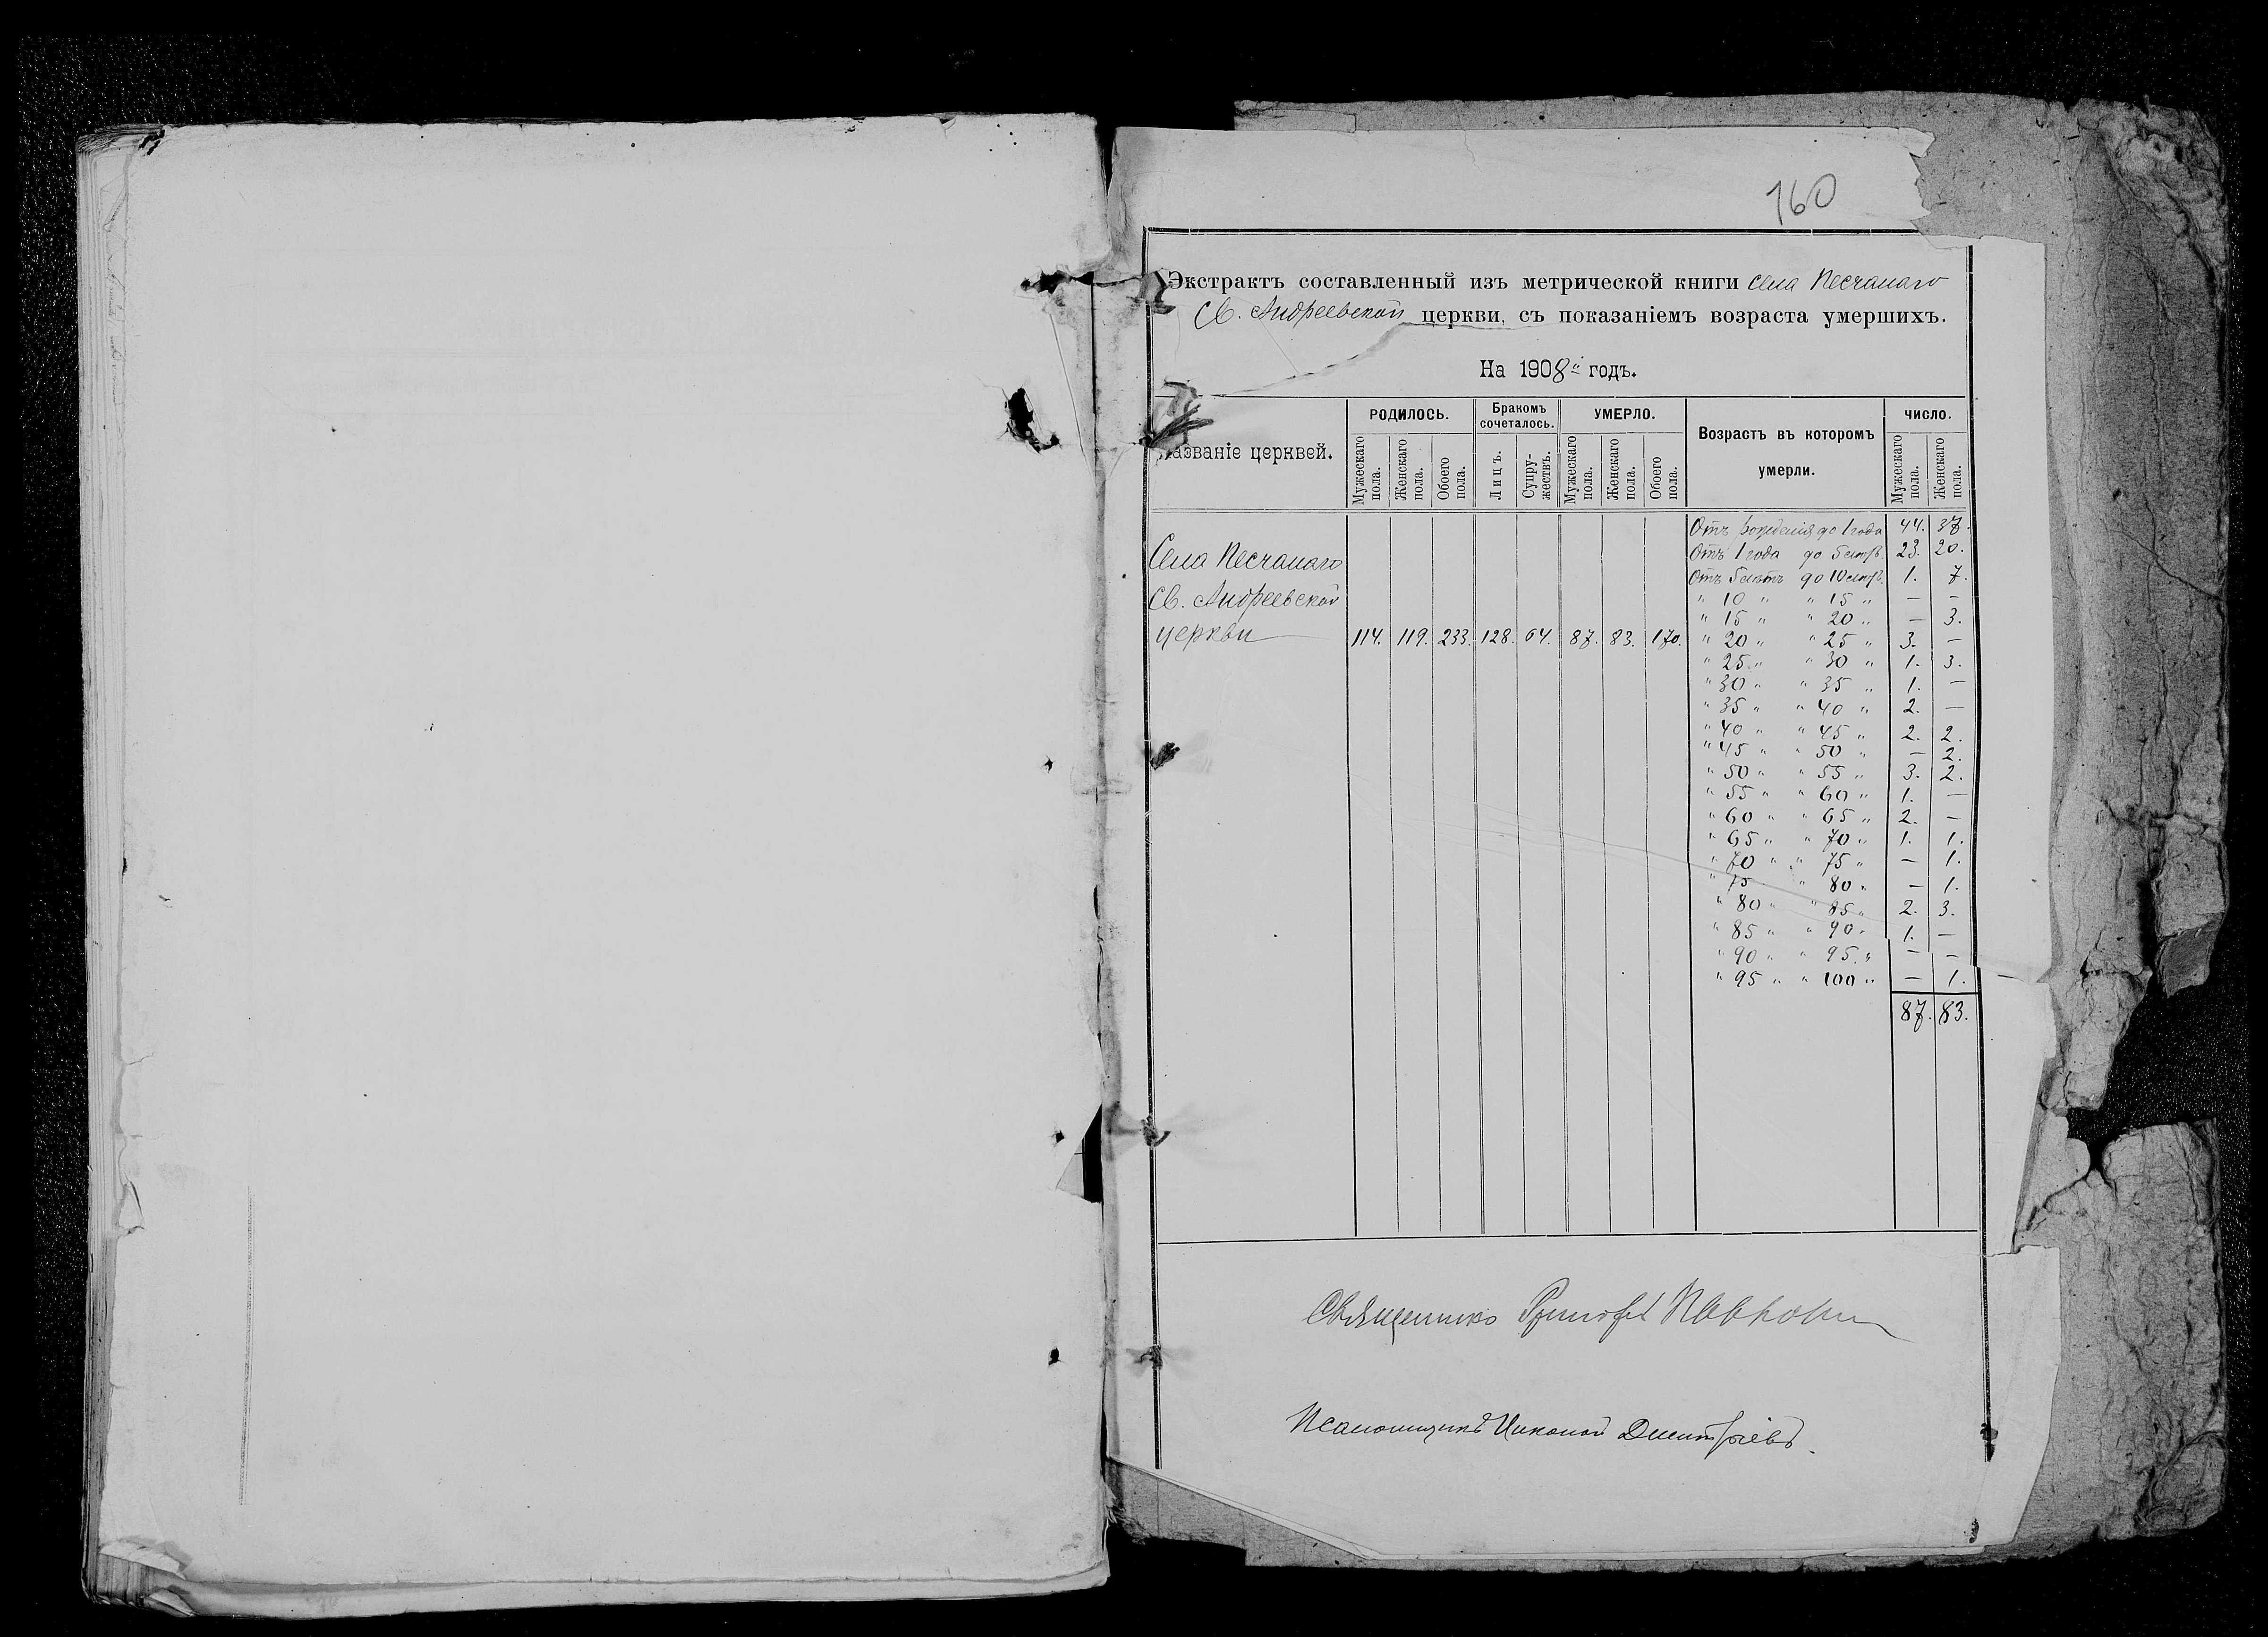 160
Экстрактъ составленный изъ метрической книги села Песчанаго
Св. Андреевской церкви, съ показаніемъ возраста умершихъ.
На 1908й годъ.
Названіе церквей. РОДИЛОСЬ. Бракомъ сочеталось. УМЕРЛО. Возрастъ въ которомъ умерли. ЧИСЛО.
Мужескаго пола. Женскаго пола. Обоего пола. Лицъ. Супружествъ. Мужескаго пола. Женскаго пола. Обоего пола. Мужескаго пола. Женскаго пола.
Отъ рожденія до 1 года 44. 37.
Отъ 1 года до 5 лѣтъ 23. 20.
Села Песчанаго
Отъ 5 лѣтъ до 10 лѣтъ 1. 7.
Св. Андреевской
" 10 " " 15 " — —
" 15 " " 20 " — 3.
церкви 114. 119. 233. 128. 64. 87. 83. 170. " 20 " " 25 " 3. —
" 25 " " 30 " 1. 3.
" 30 " " 35 " 1. —
" 35 " " 40 " 2. —
" 40 " " 45 " 2. 2.
" 45 " " 50 " — 2.
" 50 " " 55 " 3. 2.
" 55 " " 60 " 1. —
" 60 " " 65 " 2. —
" 65 " " 70 " 1. 1.
" 70 " " 75 " — 1.
" 75 " 80 " — 1.
" 80 " " 85 " 2. 3.
" 85 " " 90 " 1. —
" 90 " " 95 " — —
" 95 " " 100 " — 1.
87. 83.
Священникъ Григорій
Псаломщикъ Николай Дмитріевъ.